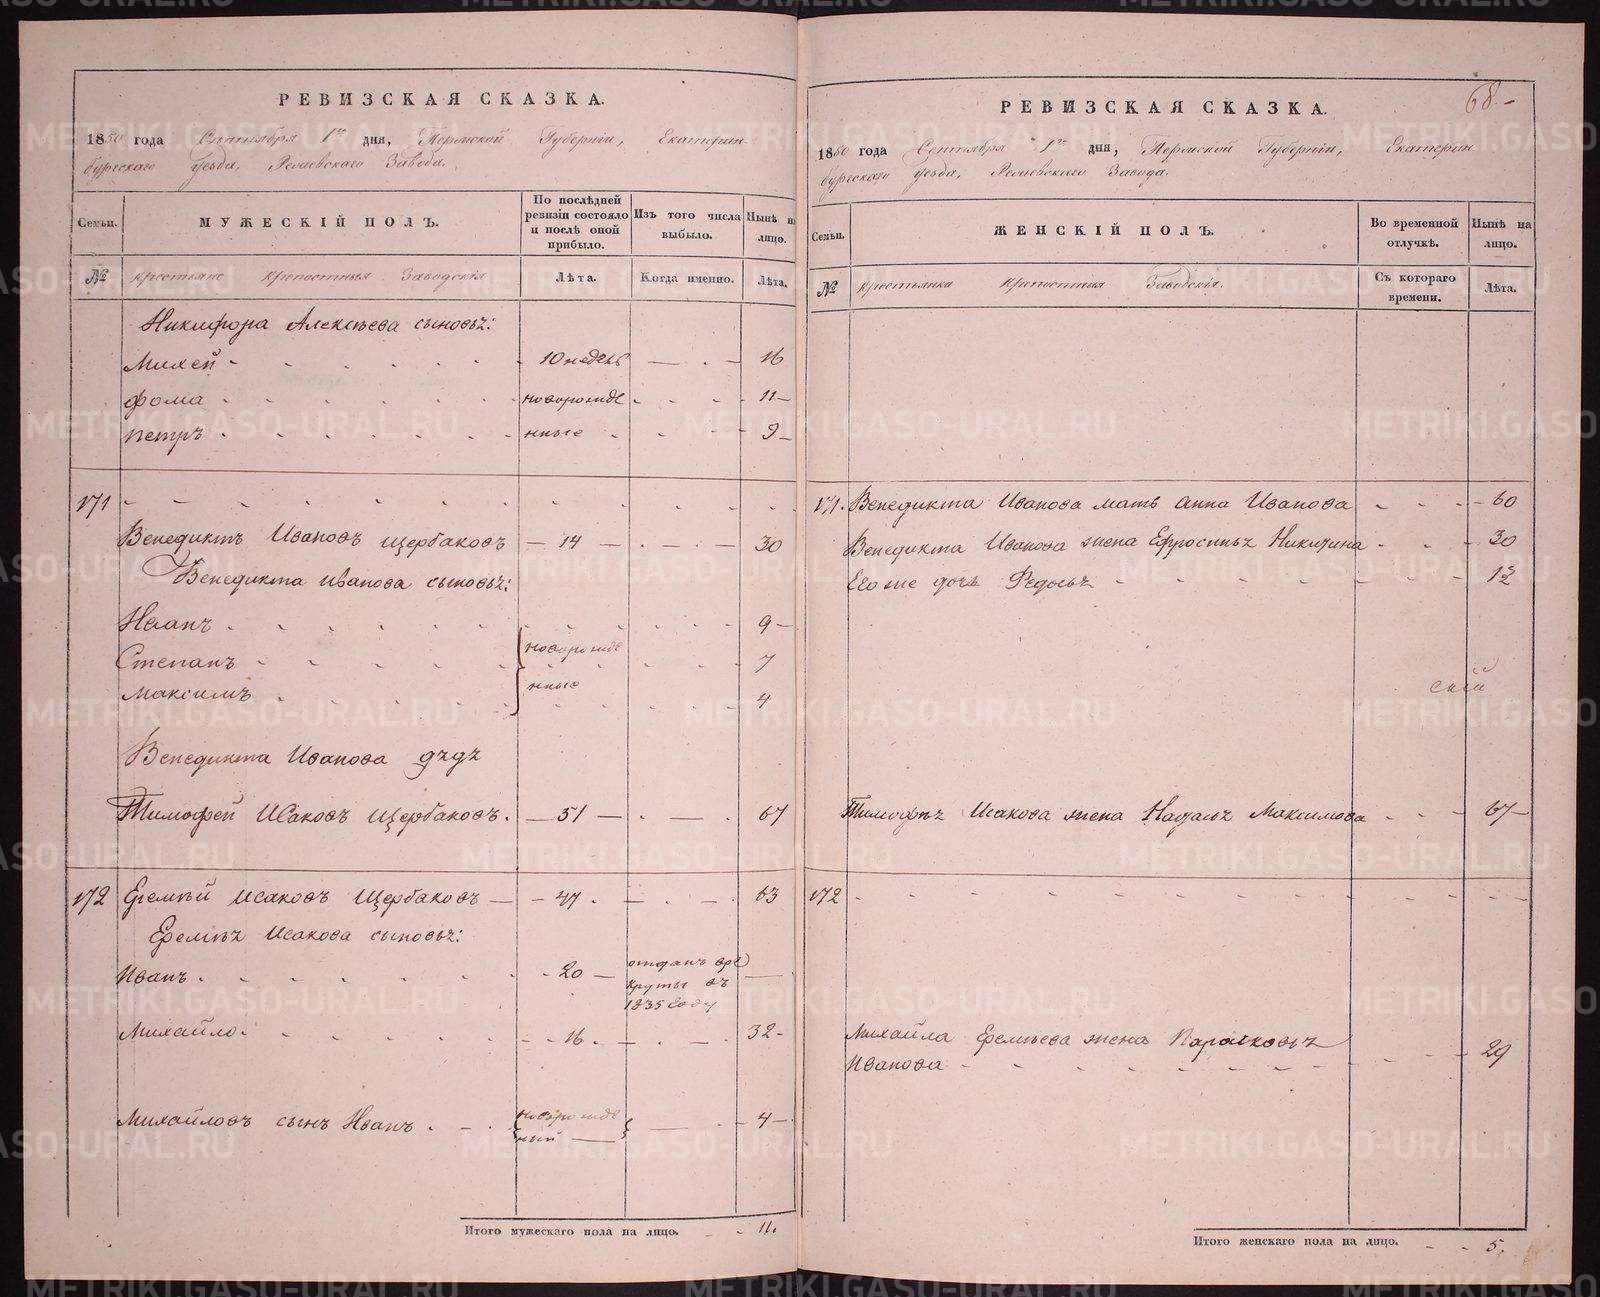 РЕВИЗСКАЯ СКАЗКА.
1850 года Сентября 1го дня, Пермской Губернии, Екатерин
бургскаго Уезда, Режевскаго Завода.
Семьи.
МУЖЕСКІЙ ПОЛЪ.
По послѣдней ревизіи состояло и послѣ оной прибыло.
Изъ того числа выбыло.
Нынѣ на лицо.
№
крестьяне крепостныя Заводскія
Лѣта.
Когда именно.
Лѣта.
Никифора Алексѣева сыновьѣ:
Михей - 10 недель - 16
Фома - новорожде - 11
Петръ - нные - 9
171
Венедиктъ Ивановъ Щербаковъ - 14 - 30
Венедикта Иванова сыновьѣ:
Иванъ - 9
новорожде
Степанъ - 7
нные
Максимъ - 4
Венедикта Иванова дѣдъ
Тимофей Исаковъ Щербаковъ. - 51 - 67
172 Еремѣй Исаковъ Щербаковъ - 47 - 63
Еремѣѣ Исакова сыновьѣ:
Иванъ - 20 - отданъ вре
круты въ
1835 году
Михайло - 16 - 32
Михайловъ сынъ Иванъ - новорожде
ный - 4
Итого мужескаго пола на лицо. - 11.
68
РЕВИЗСКАЯ СКАЗКА.
1850 года Сентября 1го дня, Пермской Губерніи, Екатерин
бургскаго Уезда, Режевскаго Завода.
Семьи.
ЖЕНСКІЙ ПОЛЪ.
Во временной отлучкѣ.
Нынѣ на лицо.
№
крестьянки крепостныя Заводскія.
Съ котораго времени.
Лѣта.
171. Венедикта Иванова мать Анна Иванова - 60
Венедикта Иванова жена Ефросиньѣ Никитина - 30
Его же дочь Федосьѣ - 13
скій
Тимофѣѣ Исакова жена Наталья Максимова - 67
172
Михайла Еремѣева жена Парасковьѣ
Иванова - 29
Итого женскаго пола на лицо. - 5.
METRIKI.GASO-URAL.RU